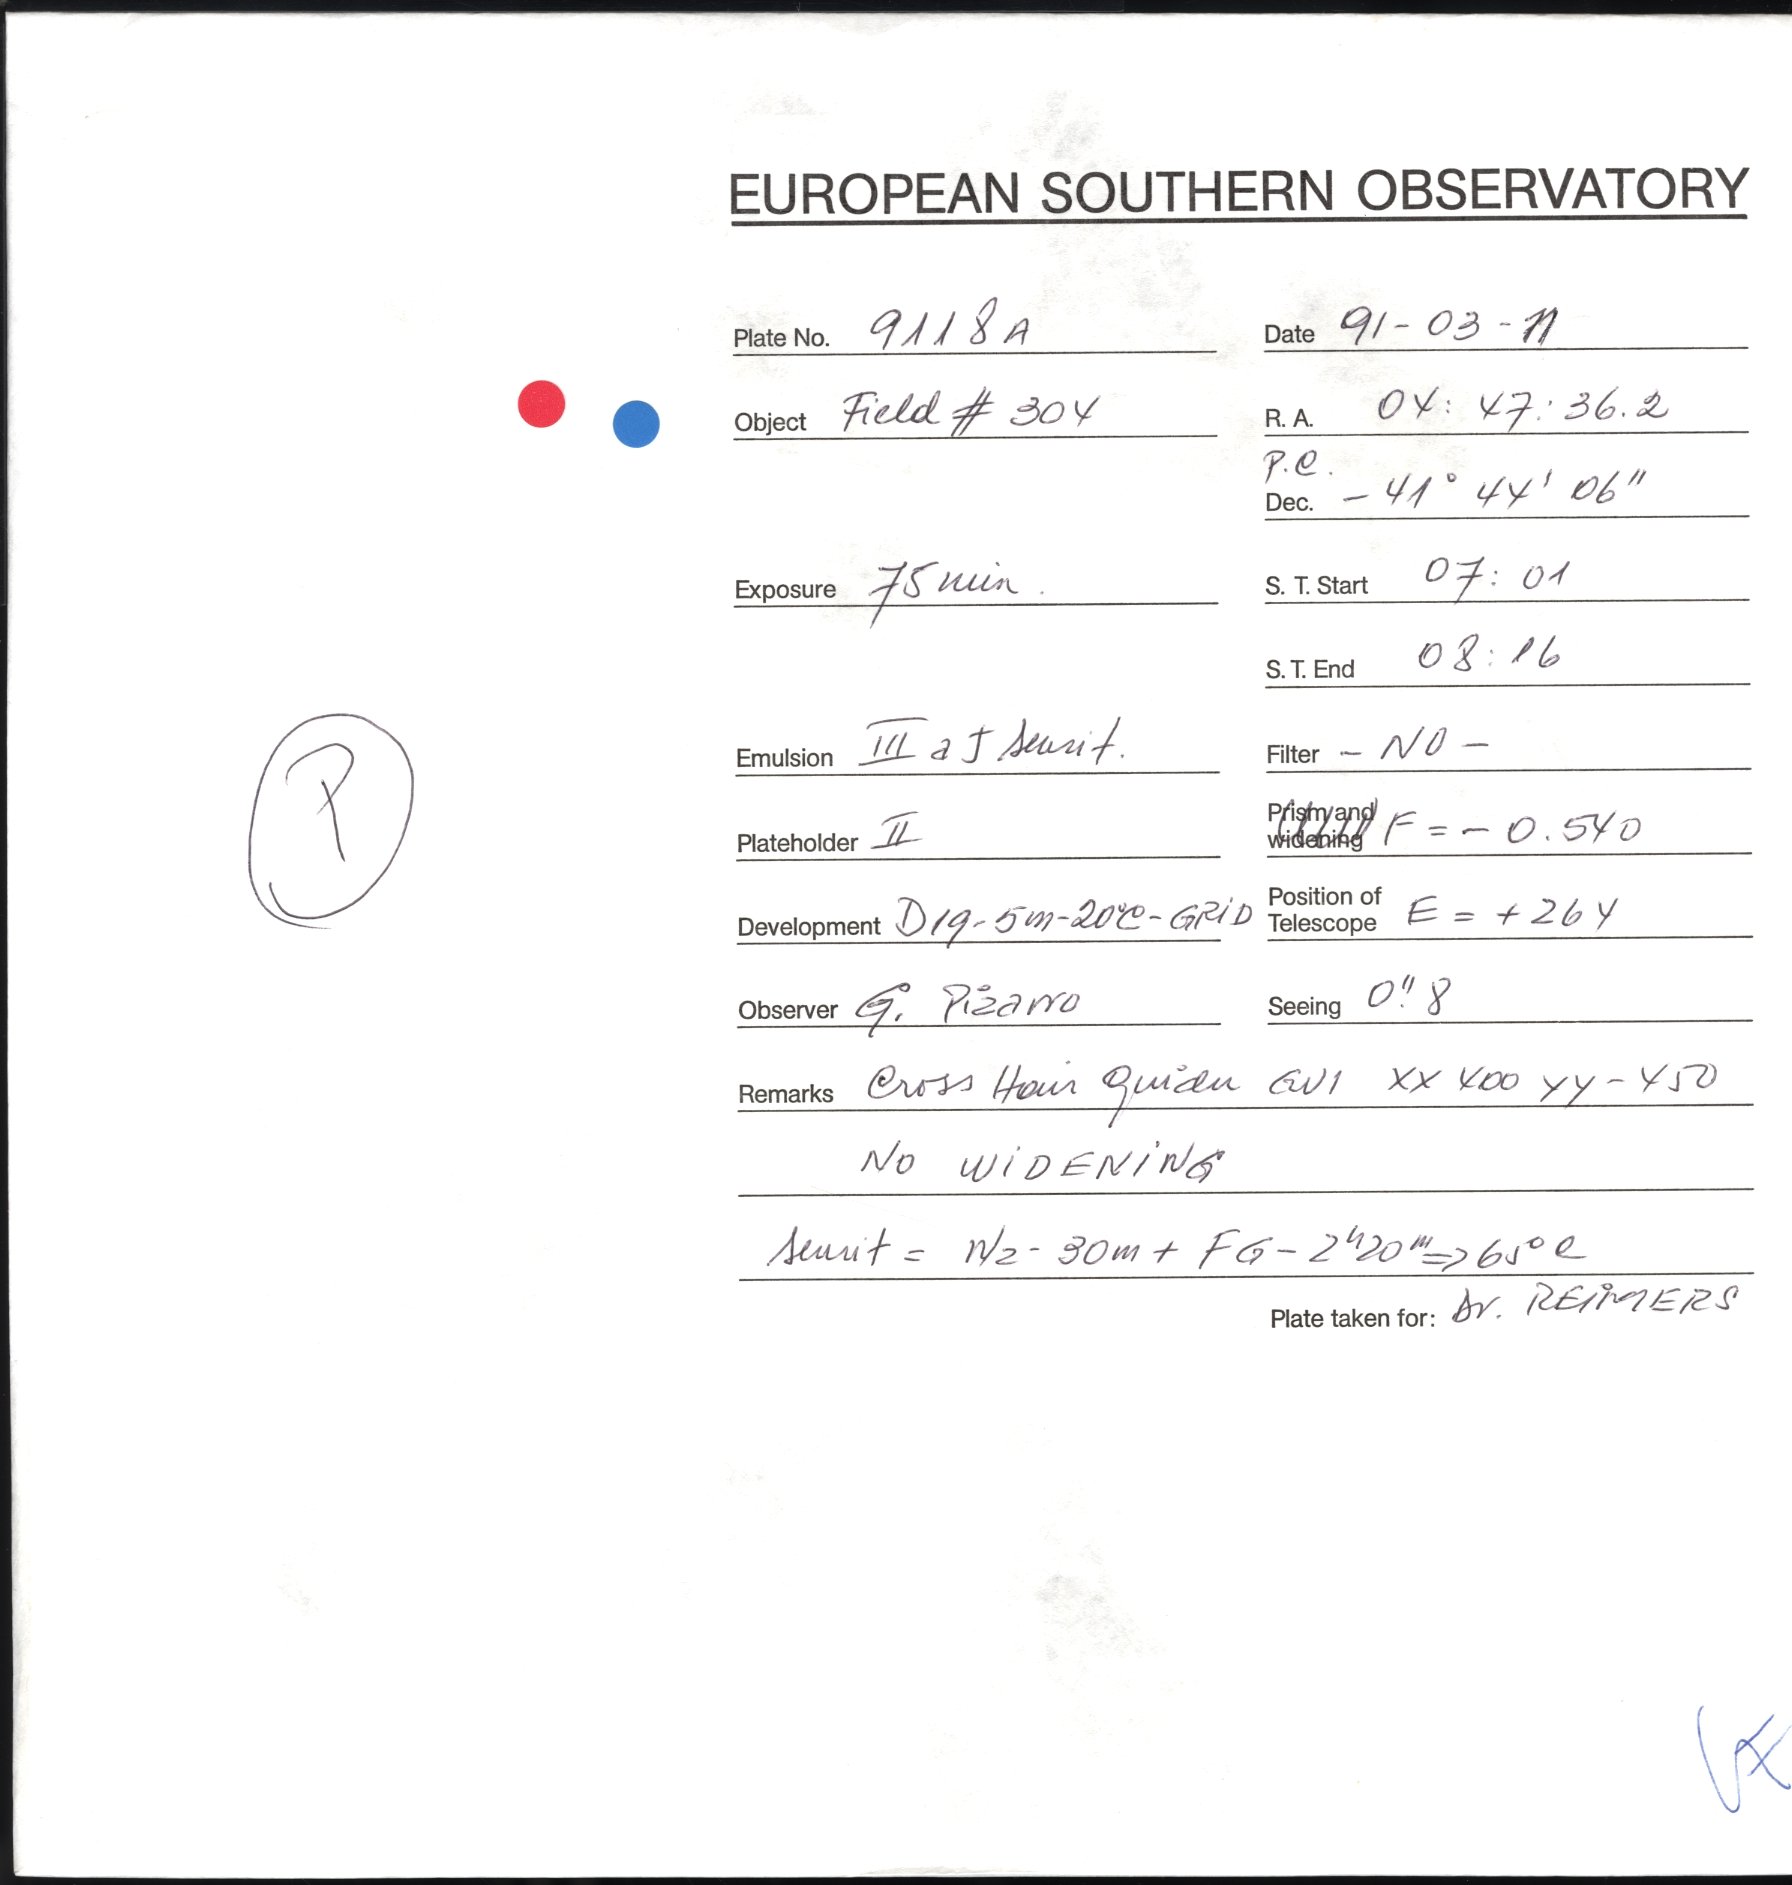 EUROPEAN SOUTHERN OBSERVATORY
Plate No. 9118A Date 91-03-11
Object Field # 304 R. A. 04: 47: 36.2
P.C.
Dec. - 41° 44' 06"
Exposure 75 min. S. T. Start 07: 01
S. T. End 08: 16
Emulsion III a J sensit. Filter - NO -
Prism and widening F = - 0.540
Plateholder II
Development D19-5m-20°C-GRiD Position of Telescope E = + 264
Observer G. Pizarro Seeing 0".8
Remarks Cross Hair XX 400 YY - 450
NO WiDENiNG
Sensit = N2 - 30m + FG - 2h20m => 65°C
Plate taken for: Dr. REiMERS
P